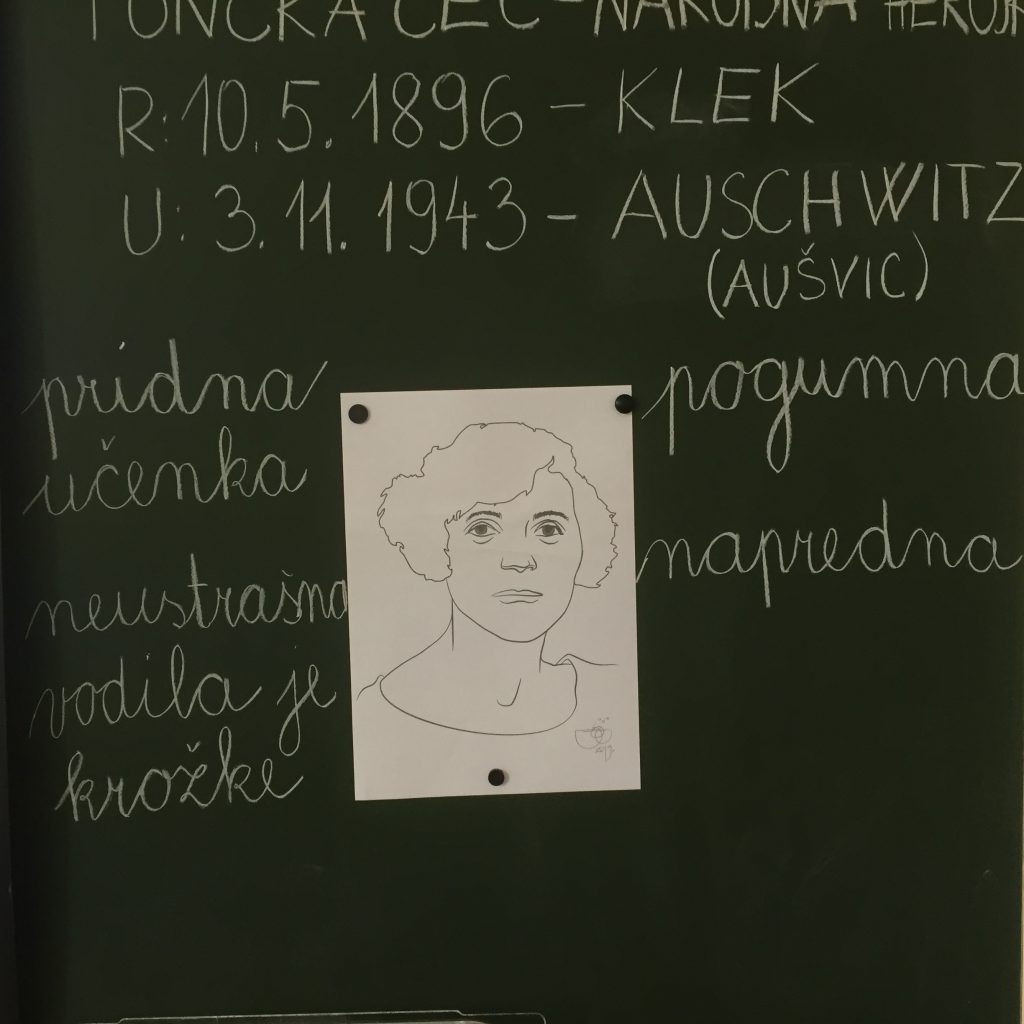 TONČKA ČEČ - NARODNA HEROJK
R: 10. 5. 1896 - KLEK
U: 3. 11. 1943 - AUSCHWITZ
(AUŠVIC)
pridna
učenka
neustrašna
vodila je
krožke
pogumna
napredna